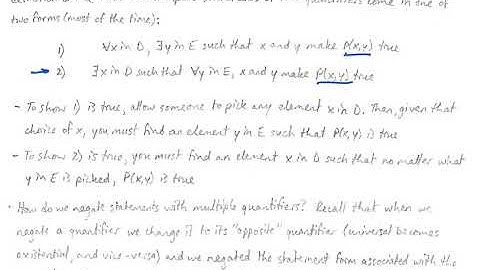 come in one of
two forms (most of the time):
1) ∀x in D, ∃y in E such that x and y make P(x,y) true
2) ∃x in D such that ∀y in E, x and y make P(x,y) true
- To show 1) is true, allow someone to pick any element x in D. Then, given that
choice of x, you must find an element y in E such that P(x,y) is true
- To show 2) is true, you must find an element x in D such that no matter what
y in E is picked, P(x,y) is true
• How do we negate statements with multiple quantifiers? Recall that when we
negate a quantifier we change it to its "opposite" quantifier (universal becomes
existential, and vice-versa) and we negated the statement form associated with the